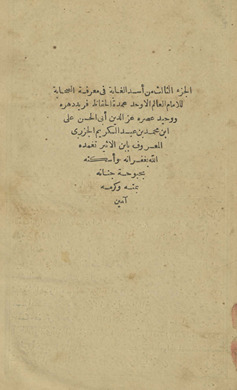 الجزء الثالث من أسد الغابة فى معرفة الصحابة
للامام العالم الاوحد عمدة الحفاظ فريد دهره
ووحيد عصره عز الدين أبى الحسن على
ابن محمد بن عبد الكريم الجزرى
المعروف بابن الاثير تغمده
الله بغفرانه وأسكنه
بحبوحة جنانه
بمنه وكرمه
آمين